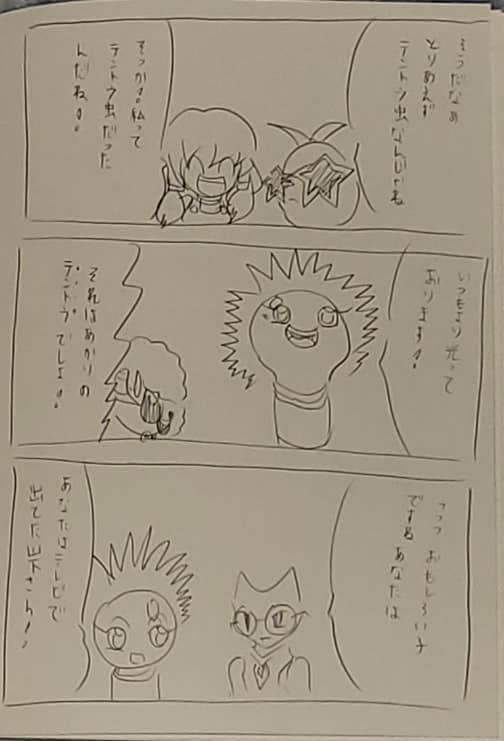 そうだなぁ
とりあえず
テントウ虫なんじゃね
そっか!!私って
テントウ虫だった
んだね!!
いつもより光って
おります!
それはあかりの
デントウでしょ!
フフフ おもしろい子
ですね あなたは
あなたはテレビで
出てた山下さん!